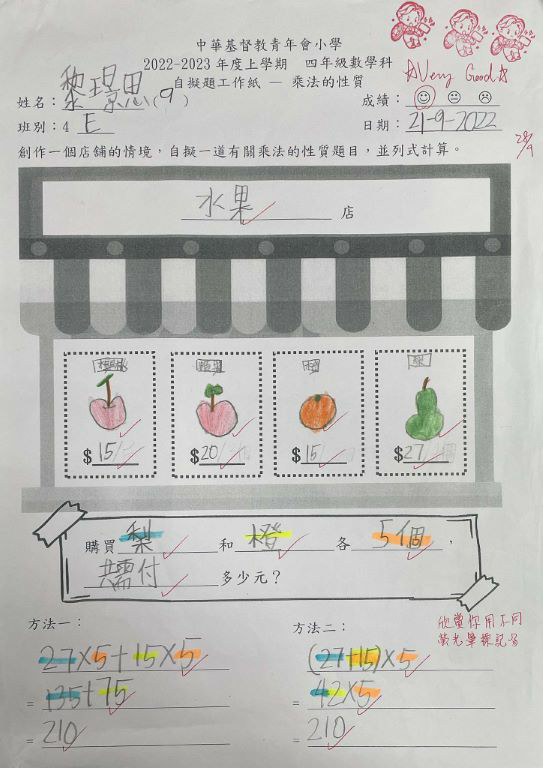 中華基督教青年會小學
2022-2023 年度上學期 四年級數學科
自擬題工作紙 — 乘法的性質
☆Very Good☆
姓名：黎璟恩(9)
成績：
班別：4 E
日期：21-9-2022
28/9
創作一個店舖的情境，自擬一道有關乘法的性質題目，並列式計算。
水果 店
$15/
$20/
$15/
$27/個
購買 梨 和 橙 各 5個，
共需付 多少元？
欣賞你用不同
螢光筆標記
方法一：
方法二：
27×5+15×5
(27+15)×5
= 135+75
= 42×5
= 210
= 210